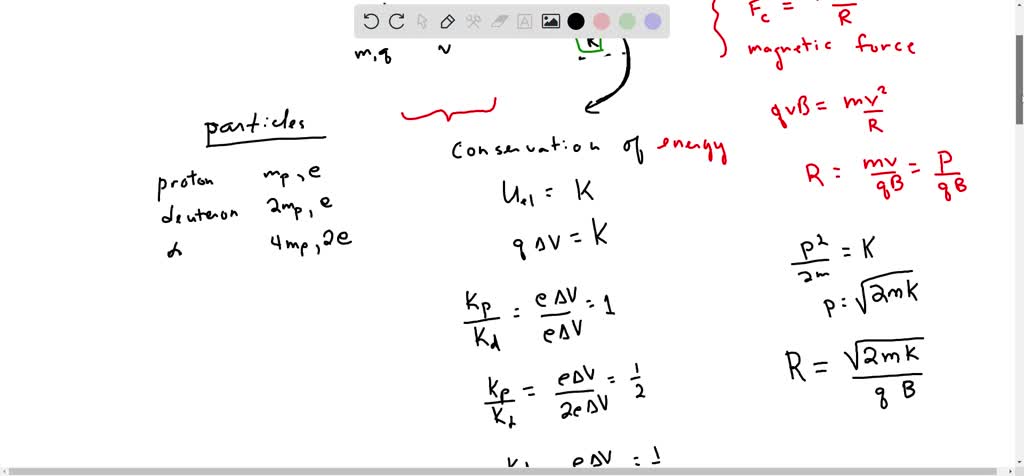 F_c = — R
m,q v R
magnetic force
particles
proton m_p, e
deuteron 2m_p, e
α 4m_p, 2e
conservation of energy
U_el = K
q ΔV = K
K_p/K_d = eΔV/eΔV = 1
K_p/K_α = eΔV/2eΔV = 1/2
eΔV = 1
qvB = mv²/R
R = mv/qB = P/qB
P²/2m = K
p = √2mK
R = √2mK / q B